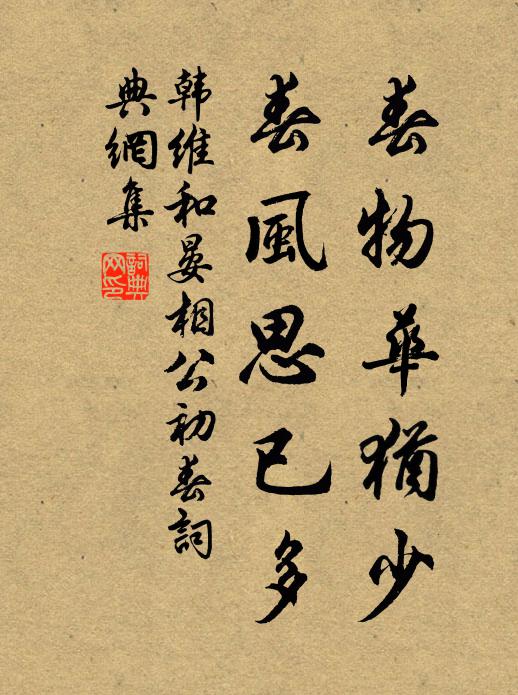 春物華猶少
春風思已多
韩维和晏相公初春詞
典網集
詞典網印